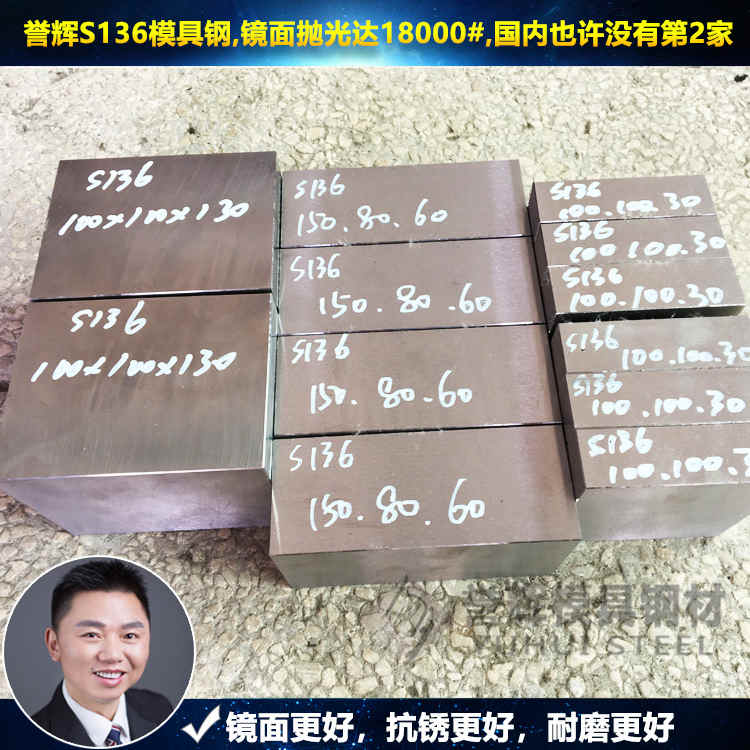 誉辉S136模具钢,镜面抛光达18000#,国内也许没有第2家
S136
100×100×130
S136
100×100×130
S136
150.80.60
S136
150.80.60
S136
150.80.60
S136
150.80.60
S136
100.100.30
S136
100.100.30
S136
100.100.30
S136
100.100.30
S136
100.100.30
S136
100.100.3
誉辉模具钢材
YUHUI STEEL
镜面更好，抗锈更好，耐磨更好